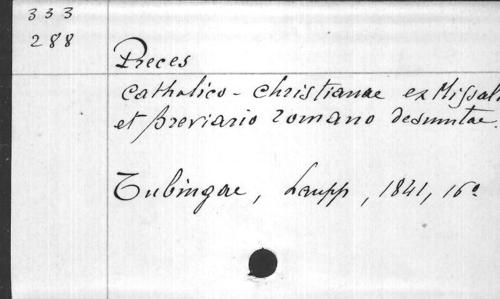 333
288
Preces
catholico-christianae ex Missali
et breviario romano desumtae.
Tubingae, Laupp, 1841, 16°